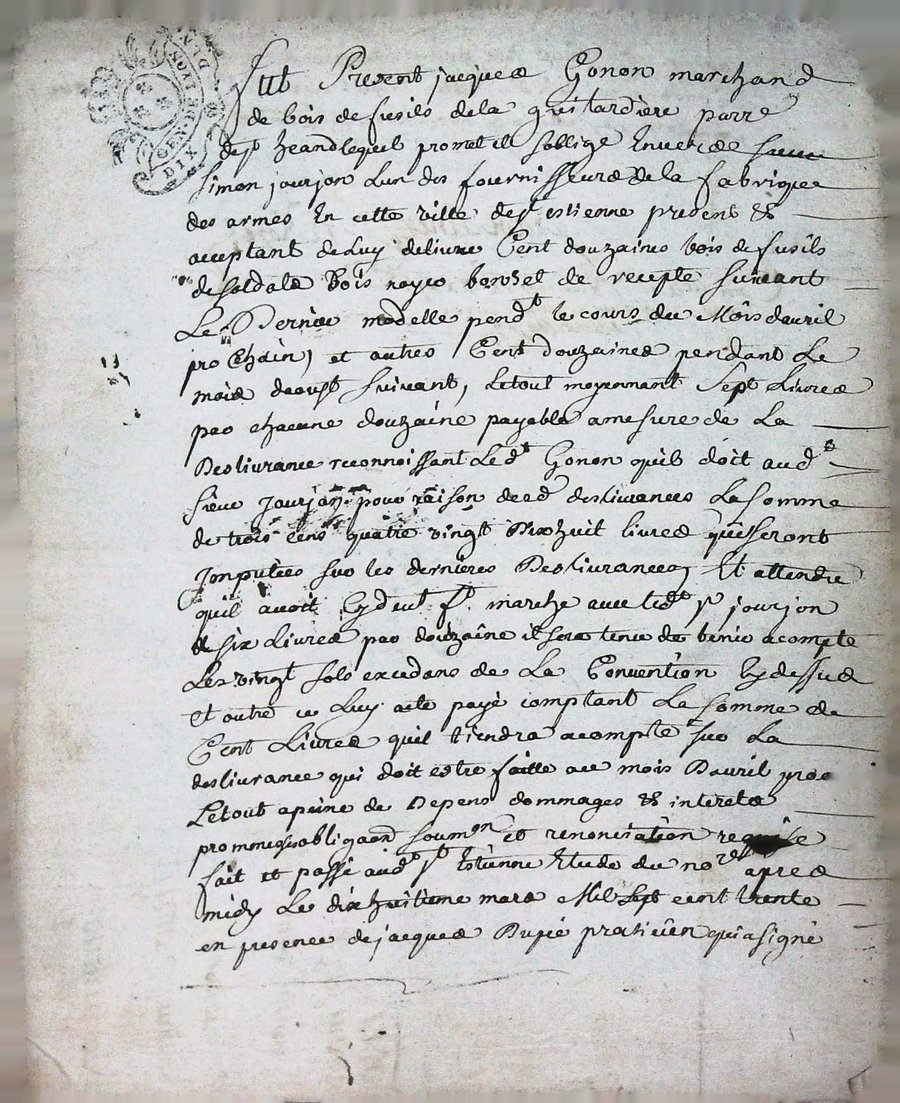 GEN. DE LYON
DIX DEN
fut Present jacques Gonon marchand
de bois de fusils dela parre
de st Jean lequel promet et soblige Envers
simon jourjon Lun des fournisseurs de la fabrique
des armes En cette ville de st estienne present &
acceptant de Luy delivre Cent douzaines bois de fusils
de soldats bois noyer bon et de recepte suivant
Le Dernier modelle pendt le cours du Mois davril
prochain, et autres Cent douzaines pendant Le
mois daoust suivant, Letout moyennant Sept Livres
par chacune douzaine payable amesure de La
Deslivrance reconnoissant Led Gonon quil doit aud
sieur Jourjon pour raison desd deslivrances La somme
de trois cens quatre vingt Dixhuit livres quiseront
Imputees sur les dernieres Deslivrances, Et attendu
quil avoit Cydevt ft marche avec led sr jourjon
a six Livres par douzaine il sera tenu de tenir acompte
Les vingt sols excedans de La Convention Cydessus
et outre ce Luy a este payé comptant La somme de
Cent Livres quil tiendra acompte sur La
deslivrance qui doit estre faitte au mois Davril pro
Letout apeine de Depens dommages & interets
soumon et renonciation requise
fait et passé aud st Estienne Etude du nore apres
midy Le dixhuitieme mars Mil Sept cent trente
en presence de jacques Dupié praticien qui a signé